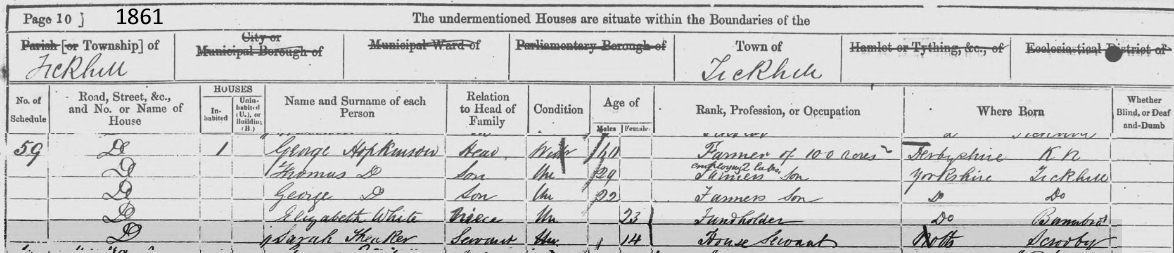 Page 10 ] 1861 The undermentioned Houses are situate within the Boundaries of the
Parish [or Township] of City or Municipal Borough of Municipal Ward of Parliamentary Borough of Town of Hamlet or Tything, &c., of Ecclesiastical District of
Tickhill Tickhill
No. of Schedule Road, Street, &c., and No. or Name of House HOUSES Inhabited Uninhabited (U.), or Building (B.) Name and Surname of each Person Relation to Head of Family Condition Age of Males Females Rank, Profession, or Occupation Where Born Whether Blind, or Deaf and-Dumb
59 Do 1 George Hopkinson Head Widr Farmer of 100 acres Derbyshire N K
employing 2 labs
Do Thomas Do Son Un 29 Farmers Son Yorkshire Tickhill
Do George Do Son Un 22 Farmers Son Do Do
Do Elizabeth White Niece Un 23 Fundholder Do
Do Sarah Theaker Servant Un 14 House Servant Notts Scrooby